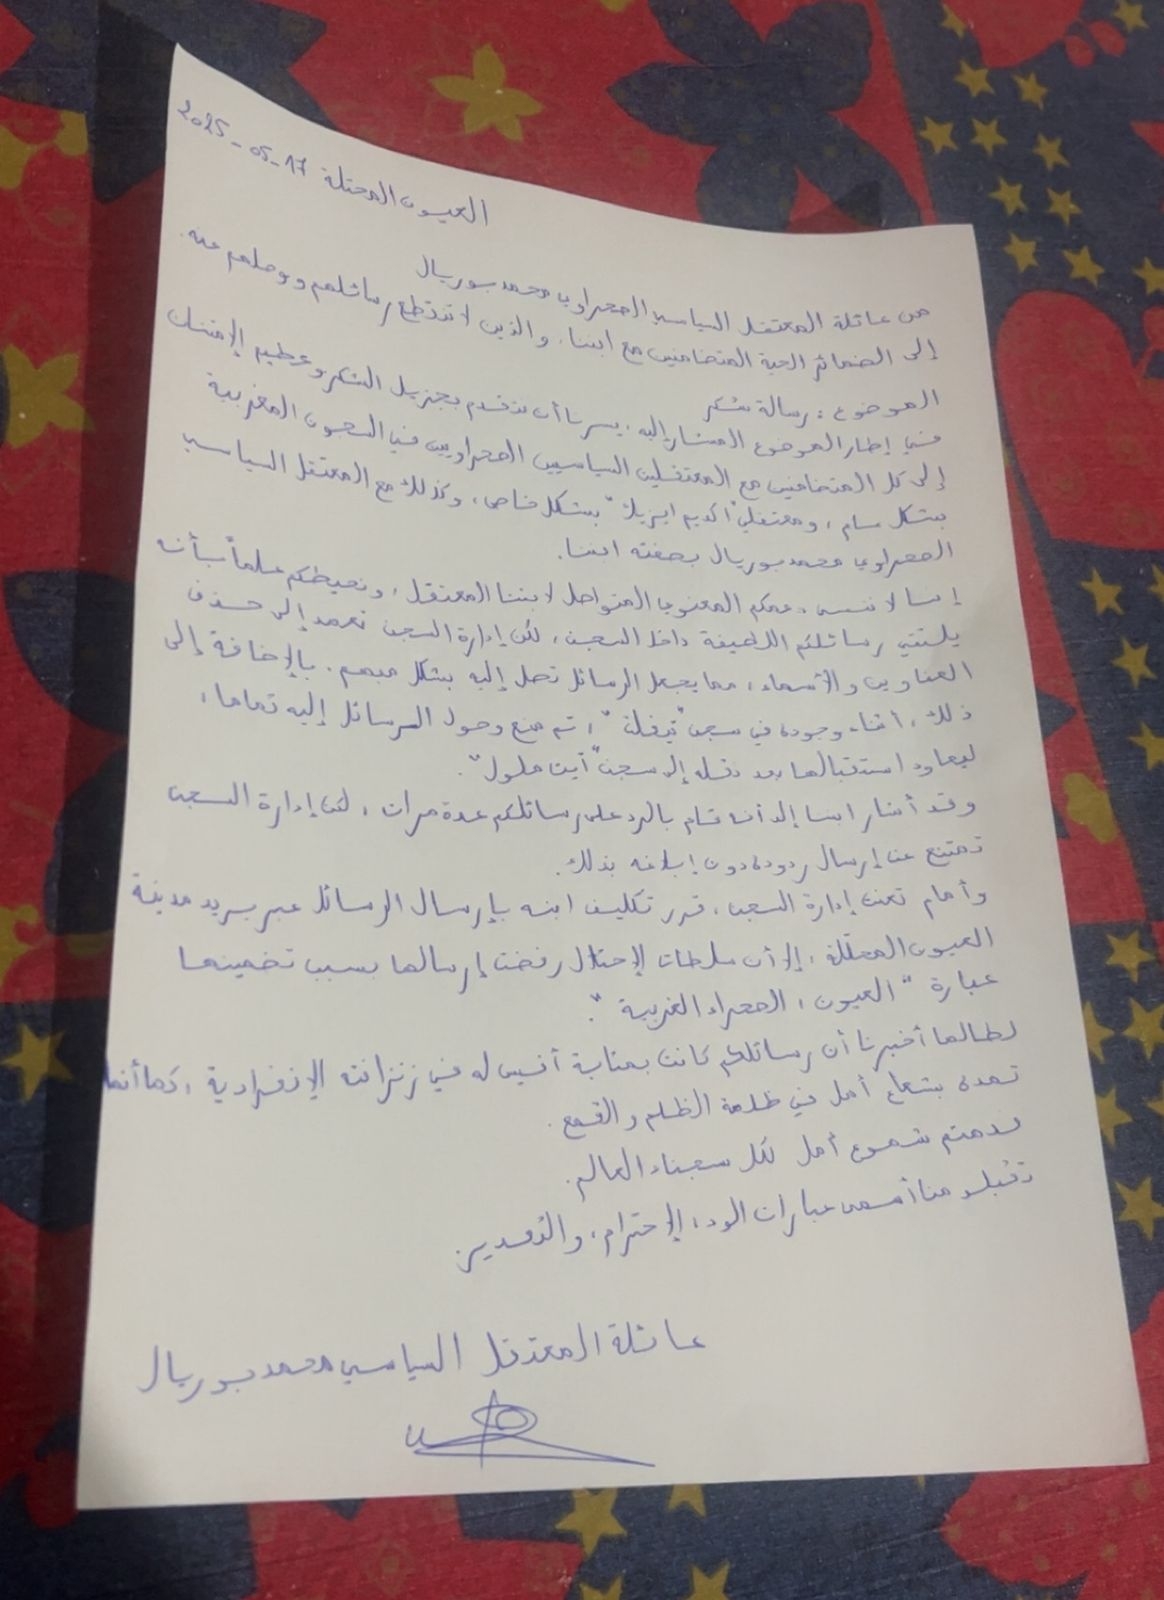 العيون المحتلة 17-05-2025
من عائلة المعتقل السياسي الصحراوي محمد بوريال
إلى الضمائر الحية المتضامنين مع ابننا، والذين لا تنقطع رسائلهم ووصلهم عنه.
الموضوع: رسالة شكر
في إطار الموضوع المشار إليه، يسرنا أن نتقدم بجزيل الشكر وعظيم الإمتنان
إلى كل المتضامنين مع المعتقلين السياسيين الصحراويين في السجون المغربية
بشكل عام، ومعتقلي "أكديم ايزيك" بشكل خاص، وكذلك مع المعتقل السياسي
الصحراوي محمد بوريال بصفته ابننا.
إننا لا ننسى دعمكم المعنوي المتواصل لابننا المعتقل، ونحيطكم علماً بأنه
يلتقي رسائلكم اللطيفة داخل السجن، لكن إدارة السجن تعمد إلى حذف
العناوين والأسماء، مما يجعل الرسائل تصل إليه بشكل مبهم. بالإضافة إلى
ذلك، أثناء وجوده في سجن "تيفلت"، تم منع وصول الرسائل إليه تماما،
ليعاود استقبالها بعد نقله إلى سجن "أيت ملول".
وقد أشار ابننا إلى أنه قام بالرد على رسائلكم عدة مرات، لكن إدارة السجن
تمتنع عن إرسال ردوده دون إبلاغه بذلك.
وأمام تعنت إدارة السجن، قرر تكليف ابنه بإرسال الرسائل عبر بريد مدينة
العيون المحتلة، إلا أن سلطات الإحتلال رفضت إرسالها بسبب تضمينها
عبارة "العيون، الصحراء الغربية".
لطالما أخبرنا أن رسائلكم كانت بمثابة أنيس له في زنزانته الإنفرادية، كما أنها
تمده بشعاع أمل في ظلمة الظلم والقمع.
فدمتم شموع أمل لكل سجناء العالم.
تقبلو منا أسمى عبارات الود، الإحترام، والتقدير.
عائلة المعتقل السياسي محمد بوريال